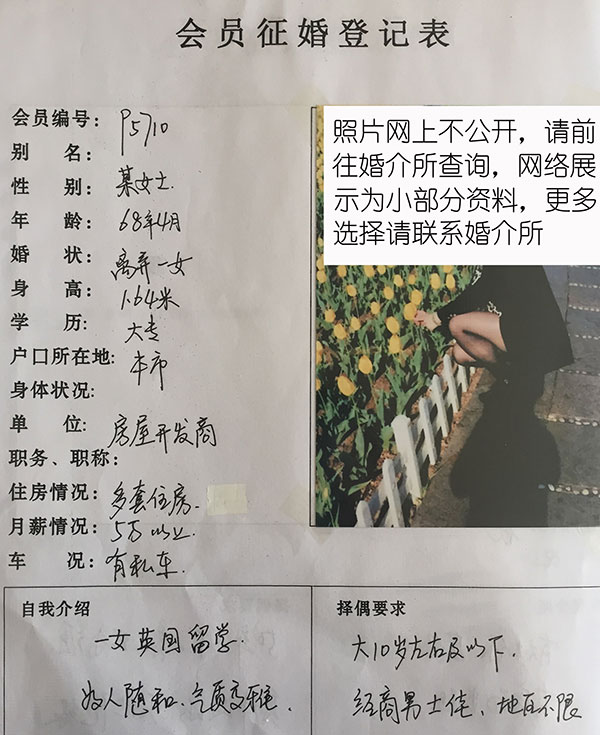 会员征婚登记表
会员编号: P5710
别 名:
性 别: 某女士.
年 龄: 68年4月
婚 状: 离异一女
身 高: 1.64米
学 历: 大专
户口所在地: 本市
身体状况:
单 位: 房屋开发商
职务、职称:
住房情况: 多套住房.
月薪情况: 5万以上
车 况: 有私车.
照片网上不公开，请前
往婚介所查询，网络展
示为小部分资料，更多
选择请联系婚介所
自我介绍
一女英国留学.
为人随和、气质
择偶要求
大10岁左右及以下.
经商男士佳、地区不限